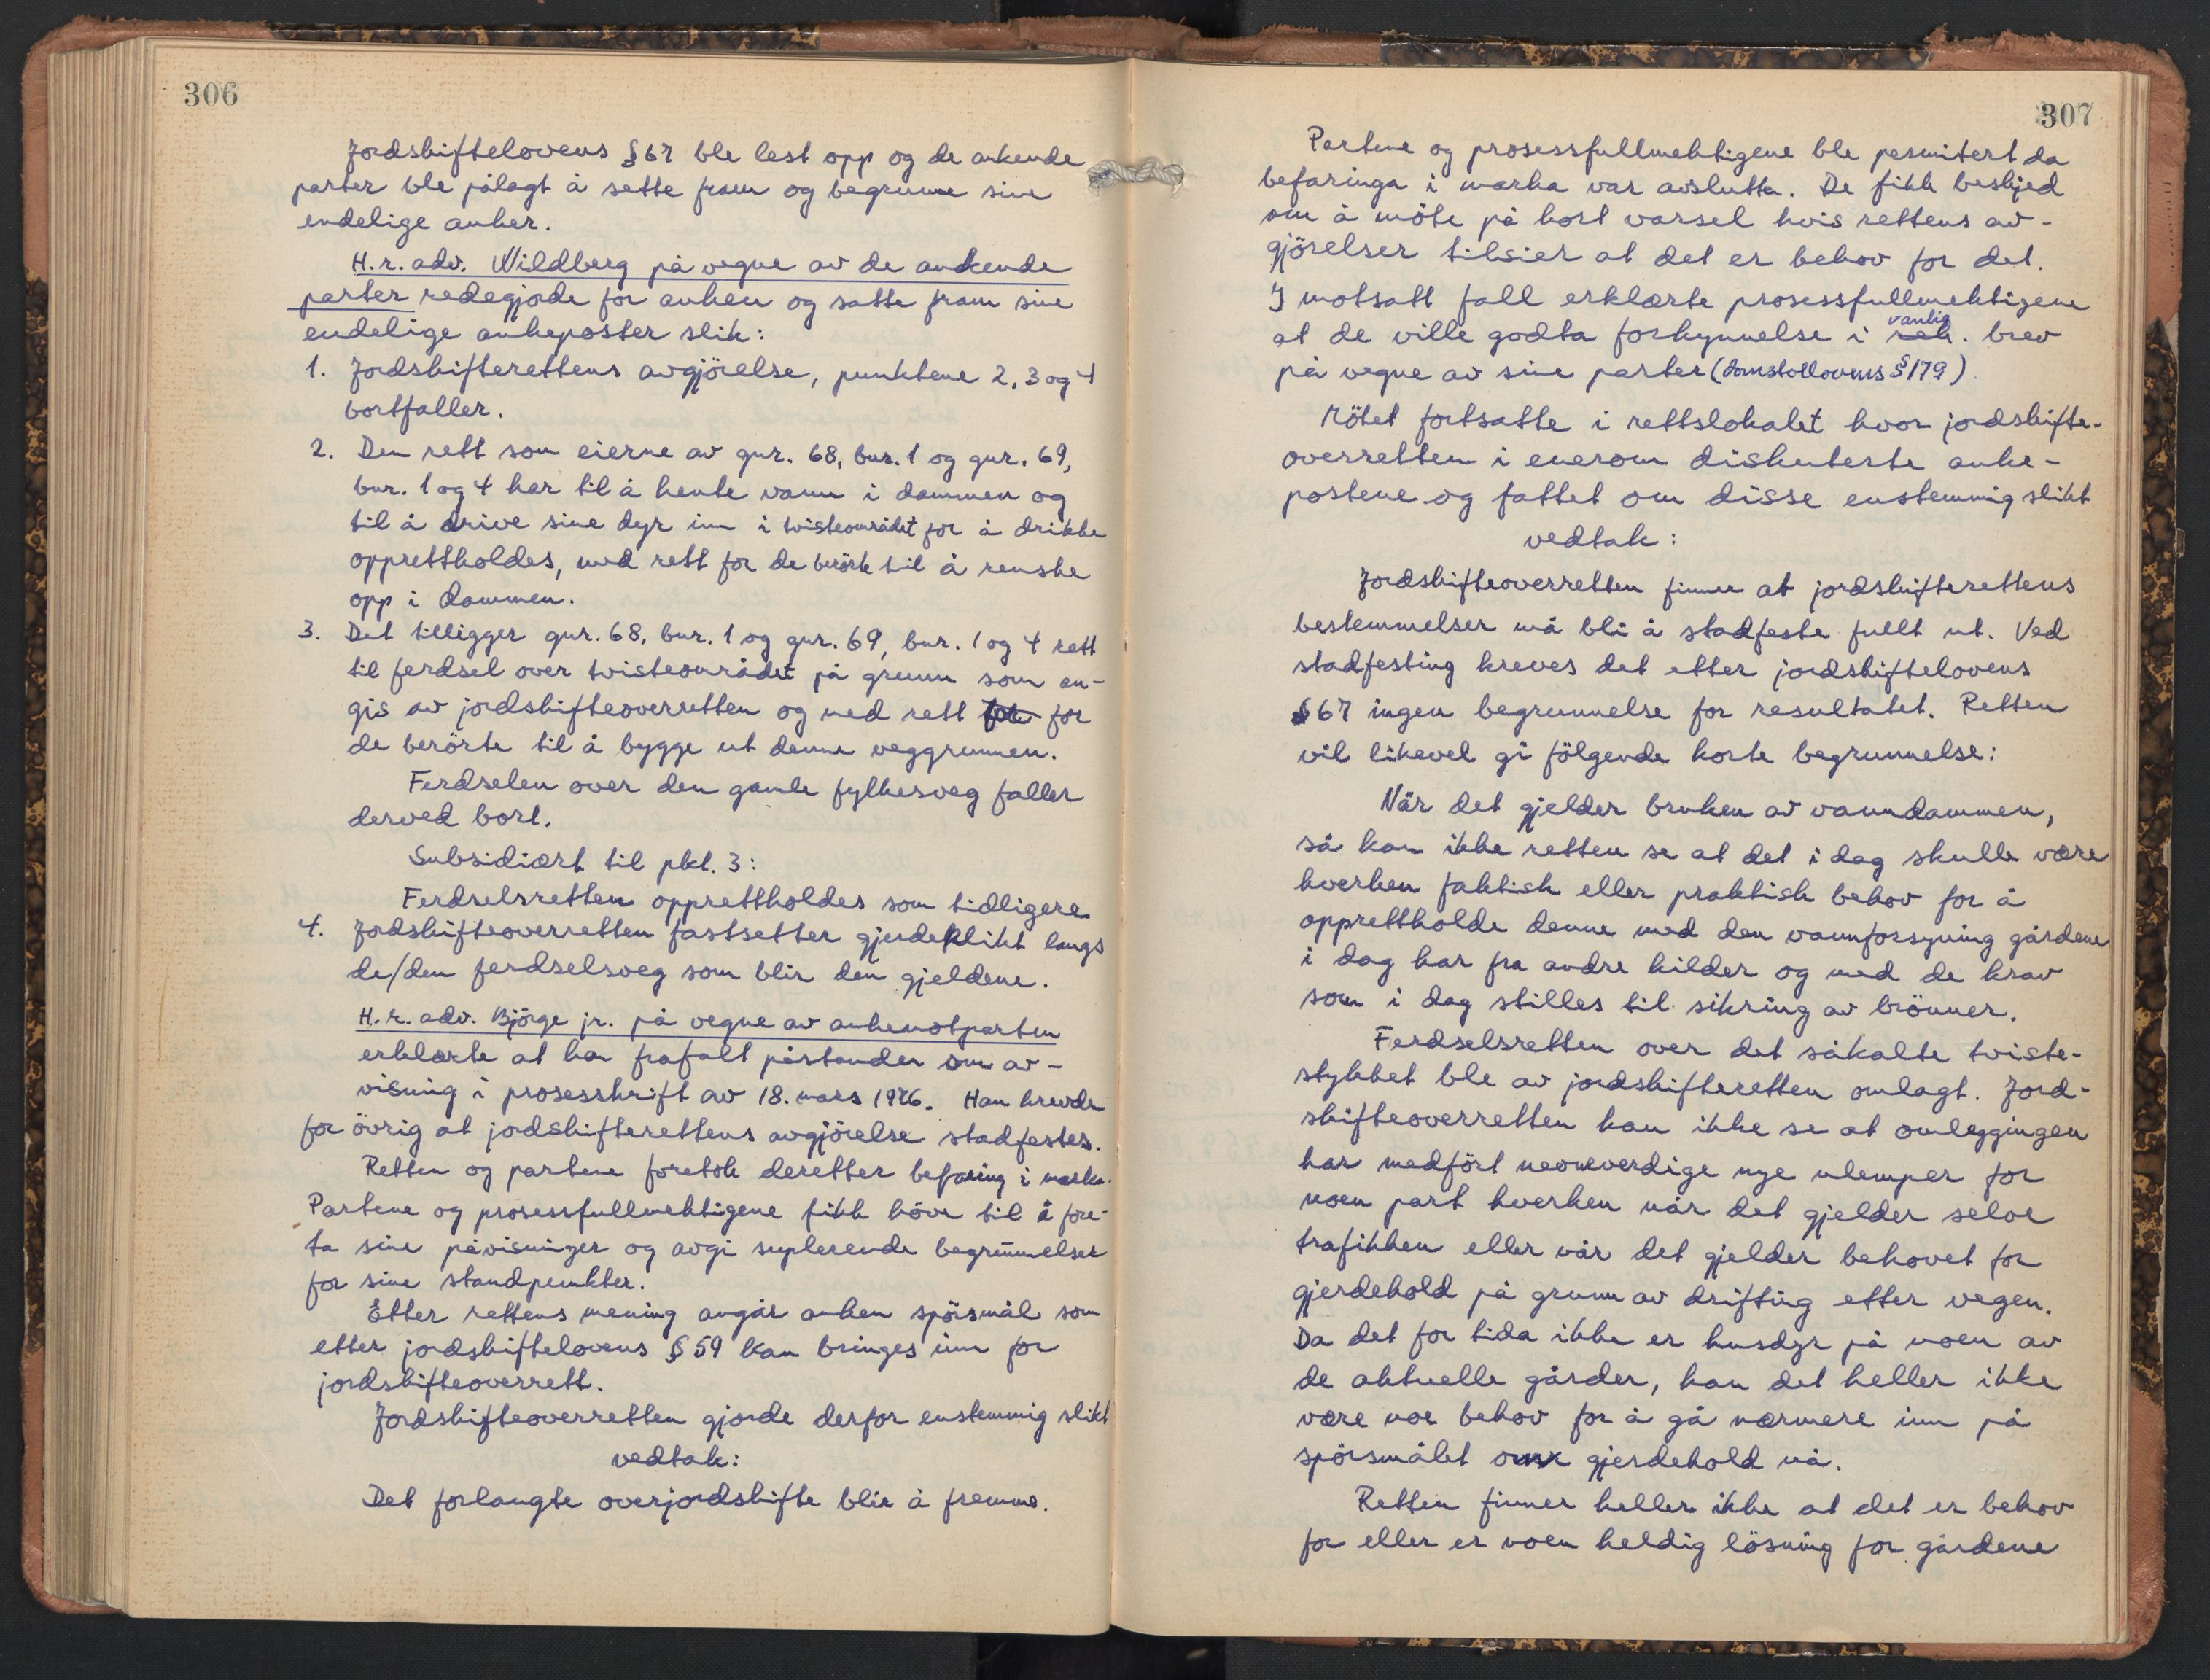 306
Jordskiftelovens § 67 ble lest opp og de ankende
parter ble pålagt å sette fram og begrunne sine
endelige anker.
H.r. adv. Wildberg på vegne av de ankende
parter redegjorde for anken og satte fram sine
endelige ankeposter slik:
1. Jordskifterettens avgjörelse, punktene 2, 3 og 4
bortfaller.
2. Den rett som eierne av gnr. 68, bnr. 1 og gnr. 69,
bnr. 1 og 4 har til å hente vann i dammen og
til å drive sine dyr inn i tvisteområdet for å drikke
opprettholdes, med rett for de berörte til å renske
opp i dammen.
3. Det tilligger gnr. 68, bnr. 1 og gnr. 69, bnr. 1 og 4 rett
til ferdsel over tvisteområdet på grunn som an-
gis av jordskifteoverretten og med rett for
de berörte til å bygge ut denne veggrunnen.
Ferdselen over den gamle fylkesveg faller
derved bort.
Subsidiært til pkt. 3:
Ferdselsretten opprettholdes som tidligere
4. Jordskifteoverretten fastsetter gjerdeplikt langs
de/den ferdselsveg som blir den gjeldene.
H.r. adv. Björge jr. på vegne av ankemotparten
erklærte at han frafalt påstanden om av-
visning i prosesskrift av 18. mars 1976. Han krevde
for övrig at jordskifterettens avgjörelse stadfestes.
Retten og partene foretok deretter befaring i marka.
Partene og prosessfullmektigene fikk höve til å fore-
ta sine påvisninger og avgi suplerende begrunnelser
for sine standpunkter.
Etter rettens mening avgår anken spörsmål som
etter jordskiftelovens § 59 kan bringes inn for
jordskifteoverrett.
Jordskifteoverretten gjorde derfor enstemmig slikt
vedtak:
Det forlangte overjordskifte blir å fremme.
307
Partene og prosessfullmektigene ble permitert da
befaringa i marka var avslutta. De fikk beskjed
om å möte på kort varsel hvis rettens av-
gjörelser tilsier at det er behov for det.
I motsatt fall erklærte prosessfullmektigene
at de ville godta forkynnelse i vanlig rek. brev
på vegne av sine parter (domstollovens § 179).
Mötet fortsatte i rettslokalet hvor jordskifte-
overretten i enerom diskuterte anke-
postene og fattet om disse enstemmig slikt
vedtak:
Jordskifteoverretten finner at jordskifterettens
bestemmelser må bli å stadfeste fullt ut. Ved
stadfesting kreves det etter jordskiftelovens
§ 67 ingen begrunnelse for resultatet. Retten
vil likevel gi fölgende korte begrunnelse:
Når det gjelder bruken av vanndammen,
så kan ikke retten se at det i dag skulle være
hverken faktisk eller praktisk behov for å
opprettholde denne med den vannforsyning gårdene
i dag har fra andre kilder og med de krav
som i dag stilles til sikring av brönner.
Ferdselsretten over det såkalte tviste-
stykket ble av jordskifteretten omlagt. Jord-
skifteoverretten kan ikke se at omleggingen
har medfört neoneverdige nye ulemper for
noen part hverken når det gjelder selve
trafikken eller når det gjelder behovet for
gjerdehold på grunn av drifting etter vegen.
Da det for tida ikke er husdyr på noen av
de aktuelle gårder, kan det heller ikke
være noe behov for å gå nærmere inn på
spörsmålet om gjerdehold nå.
Retten finner heller ikke at det er behov
for eller er noen heldig lösning for gårdene